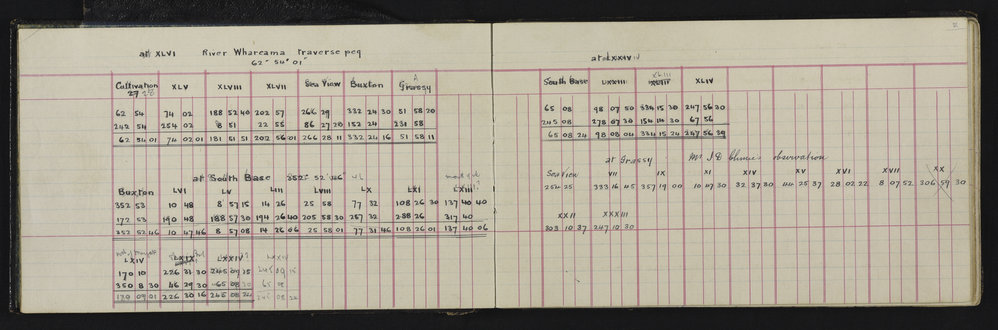 at XLVI River Whareama traverse peg
62° 54' 01"
Cultivation XLV XLVIII XLVII Sea View Buxton Grassy
27 28
62 54 74 02 188 52 40 202 57 266 29 332 24 30 51 58 20
242 54 254 02 8 51 22 55 86 27 28 152 24 231 58
62 54 01 74 02 01 181 51 51 202 56 01 266 28 11 332 24 16 51 58 11
at South Base 352° 52' 46"
Buxton LVI LV LIII LVIII LX LXI LXIII
352 53 10 48 8 57 15 14 26 25 58 77 32 108 26 30 137 40 40
172 53 190 48 188 57 30 194 26 40 205 58 30 257 32 288 26 317 40
352 52 46 10 47 46 8 57 08 14 26 06 25 58 01 77 31 46 108 26 01 137 40 06
LXIV LXIX LXXIV LXXIV
170 10 226 31 30 245 09 15 245 09 15
350 8 30 46 29 30 65 08 30 65 08
170 09 01 226 30 16 245 08 24 245 08 24
at LXXIV
South Base LXXIII XLIII XLIV
65 08 98 07 50 334 15 30 247 56 30
245 08 278 07 30 154 14 30 67 56
65 08 24 98 08 04 334 15 24 247 56 39
at Grassy Mr J D observation
Sea View VII IX XI XIV XV XVI XVII XX
254 25 333 16 45 357 19 00 10 07 30 32 37 30 44 25 37 28 02 22 8 07 52 306 59 30
XXII XXXIII
303 10 37 247 10 30